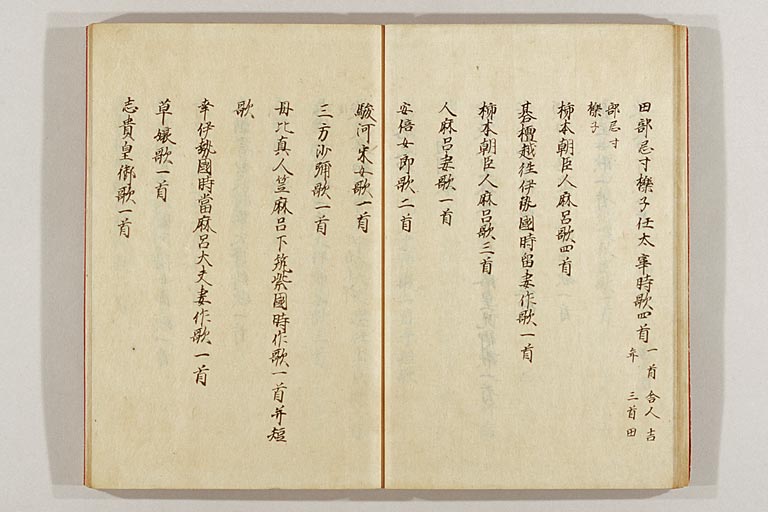 田部忌寸櫟子任太宰時歌四首 一首 舎人吉
年 三首 田
部忌寸
櫟子
柿本朝臣人麻呂歌四首
碁檀越徃伊勢國時留妻作歌一首
柿本朝臣人麻呂歌三首
人麻呂妻歌一首
安倍女郎歌二首
駿河采女歌一首
三方沙彌歌一首
丹比真人笠麻呂下筑紫國時作歌一首并短
歌
幸伊勢國時當麻呂大夫妻作歌一首
草孃歌一首
志貴皇御歌一首